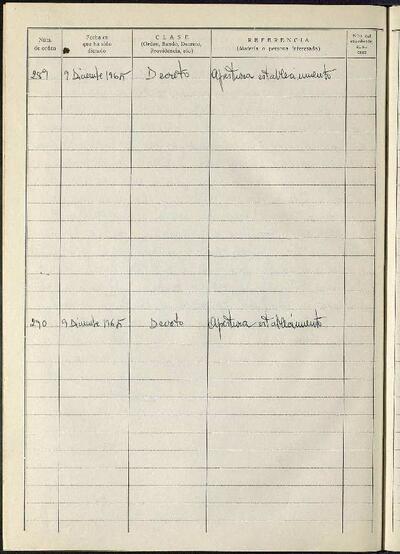 Núm. de orden
Fecha en que ha sido dictado
CLASE
(Orden, Bando, Decreto, Providencia, etc.)
REFERENCIA
(Materia o persona interesada)
289 9 Diciembre 1965 Decreto Apertura establecimiento
290 9 Diciembre 1965 Decreto Apertura establecimiento